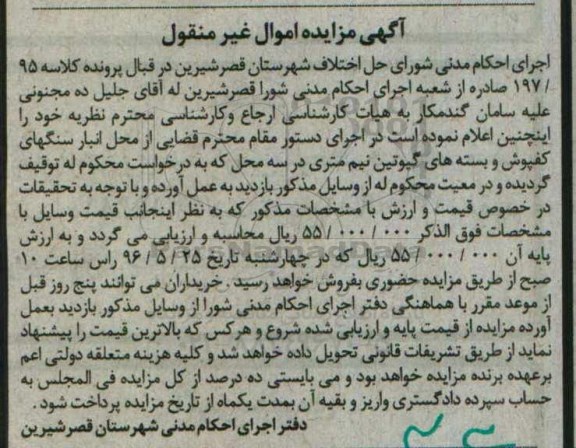 آگهی مزایده اموال غیر منقول
اجرای احکام مدنی شورای حل اختلاف شهرستان قصرشیرین در قبال پرونده کلاسه ۹۵
/ ۱۹۷ صادره از شعبه اجرای احکام مدنی شورا قصرشیرین له آقای جلیل ده مجنونی
علیه سامان گندمکار به هیات کارشناسی ارجاع وکارشناسی محترم نظریه خود را
اینچنین اعلام نموده است در اجرای دستور مقام محترم قضایی از محل انبار سنگهای
کفپوش و بسته های گیوتین نیم متری در سه محل که به درخواست محکوم له توقیف
گردیده و در معیت محکوم له از وسایل مذکور بازدید به عمل آورده و با توجه به تحقیقات
در خصوص قیمت و ارزش با مشخصات مذکور که به نظر اینجانب قیمت وسایل با
مشخصات فوق الذکر ۰۰۰ / ۰۰۰ / ۵۵ ریال محاسبه و ارزیابی می گردد و به ارزش
پایه آن ۰۰۰ / ۰۰۰ / ۵۵ ریال که در چهارشنبه تاریخ ۲۵ / ۵ / ۹۶ راس ساعت ۱۰
صبح از طریق مزایده حضوری بفروش خواهد رسید . خریداران می توانند پنج روز قبل
از موعد مقرر با هماهنگی دفتر اجرای احکام مدنی شورا از وسایل مذکور بازدید بعمل
آورده مزایده از قیمت پایه و ارزیابی شده شروع و هرکس که بالاترین قیمت را پیشنهاد
نماید از طریق تشریفات قانونی تحویل داده خواهد شد و کلیه هزینه متعلقه دولتی اعم
برعهده برنده مزایده خواهد بود و می بایستی ده درصد از کل مزایده فی المجلس به
حساب سپرده دادگستری واریز و بقیه آن بمدت یکماه از تاریخ مزایده پرداخت شود .
دفتر اجرای احکام مدنی شهرستان قصرشیرین